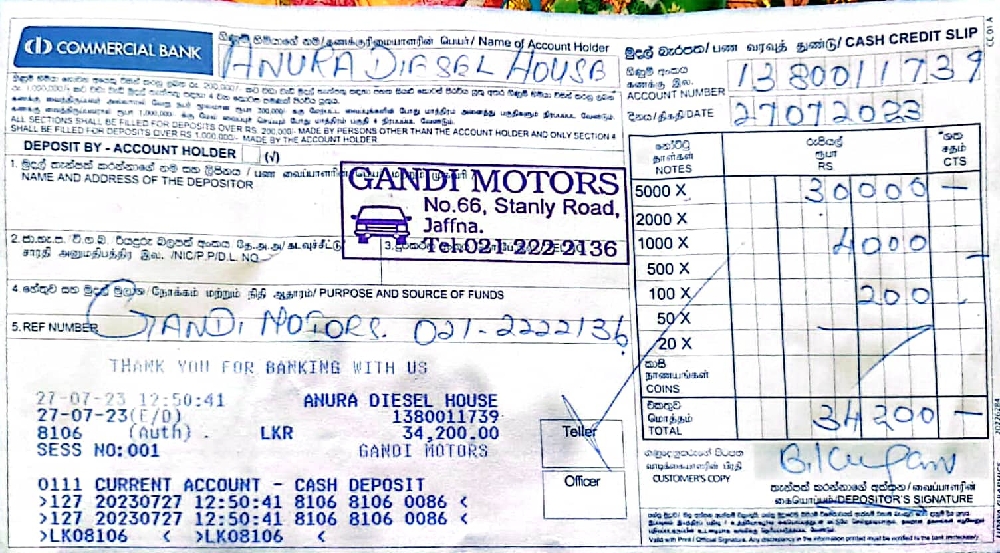 COMMERCIAL BANK
ගිණුම් හිමියාගේ නම/கணக்குரிமையாளரின் பெயர்/ Name of Account Holder
ANURA DIESEL HOUSE
මුදල් බැරපත/பண வரவுத் துண்டு/ CASH CREDIT SLIP
ගිණුම් අංකය
கணக்கு இல.
ACCOUNT NUMBER
1380011739
දිනය/திகதி DATE
27072023
ALL SECTIONS SHALL BE FILLED FOR DEPOSITS OVER RS. 200,000/- MADE BY PERSONS OTHER THAN THE ACCOUNT HOLDER AND ONLY SECTION 4
SHALL BE FILLED FOR DEPOSITS OVER RS 1,000,000/- MADE BY THE ACCOUNT HOLDER
DEPOSIT BY - ACCOUNT HOLDER (√)
NAME AND ADDRESS OF THE DEPOSITOR
GANDI MOTORS
No.66, Stanly Road,
Jaffna.
Tel:021-222 2136
சாரதி அனுமதிபத்திர இல. /NIC/P.P/D.L. NO
4. හේතුව සහ මුදල් මූලාශ්‍ර/நோக்கம் மற்றும் நிதி ஆதாரம்/ PURPOSE AND SOURCE OF FUNDS
5. REF NUMBER
GANDI MOTORS. 021-2222136
නෝට්ටු
தாள்கள்
NOTES
රුපියල්
ரூபா
RS
ශත
சதம்
CTS
5000 X 30000 —
2000 X
1000 X 4000
500 X
100 X 200
50 X
20 X
කාසි
நாணயங்கள்
COINS
එකතුව
மொத்தம்
TOTAL
34200 —
THANK YOU FOR BANKING WITH US
27-07-23 12:50:41 ANURA DIESEL HOUSE
27-07-23(E/D) 1380011739
8106 (Auth) . LKR 34,200.00
SESS NO:001 GANDI MOTORS
0111 CURRENT ACCOUNT - CASH DEPOSIT
>127 20230727 12:50:41 8106 8106 0086 <
>127 20230727 12:50:41 8106 8106 0086 <
>LK08106 < >LK08106 <
Teller
Officer
வாடிக்கையாளரின் பிரதி
CUSTOMER'S COPY
තැන්පත් කරන්නාගේ අත්සන/வைப்பாளரின்
கையொப்பம்/DEPOSITOR'S SIGNATURE
Valid with Print / Official Signature. Any discrepancy in the information printed must be notified to the bank immediately.
CC 01 A